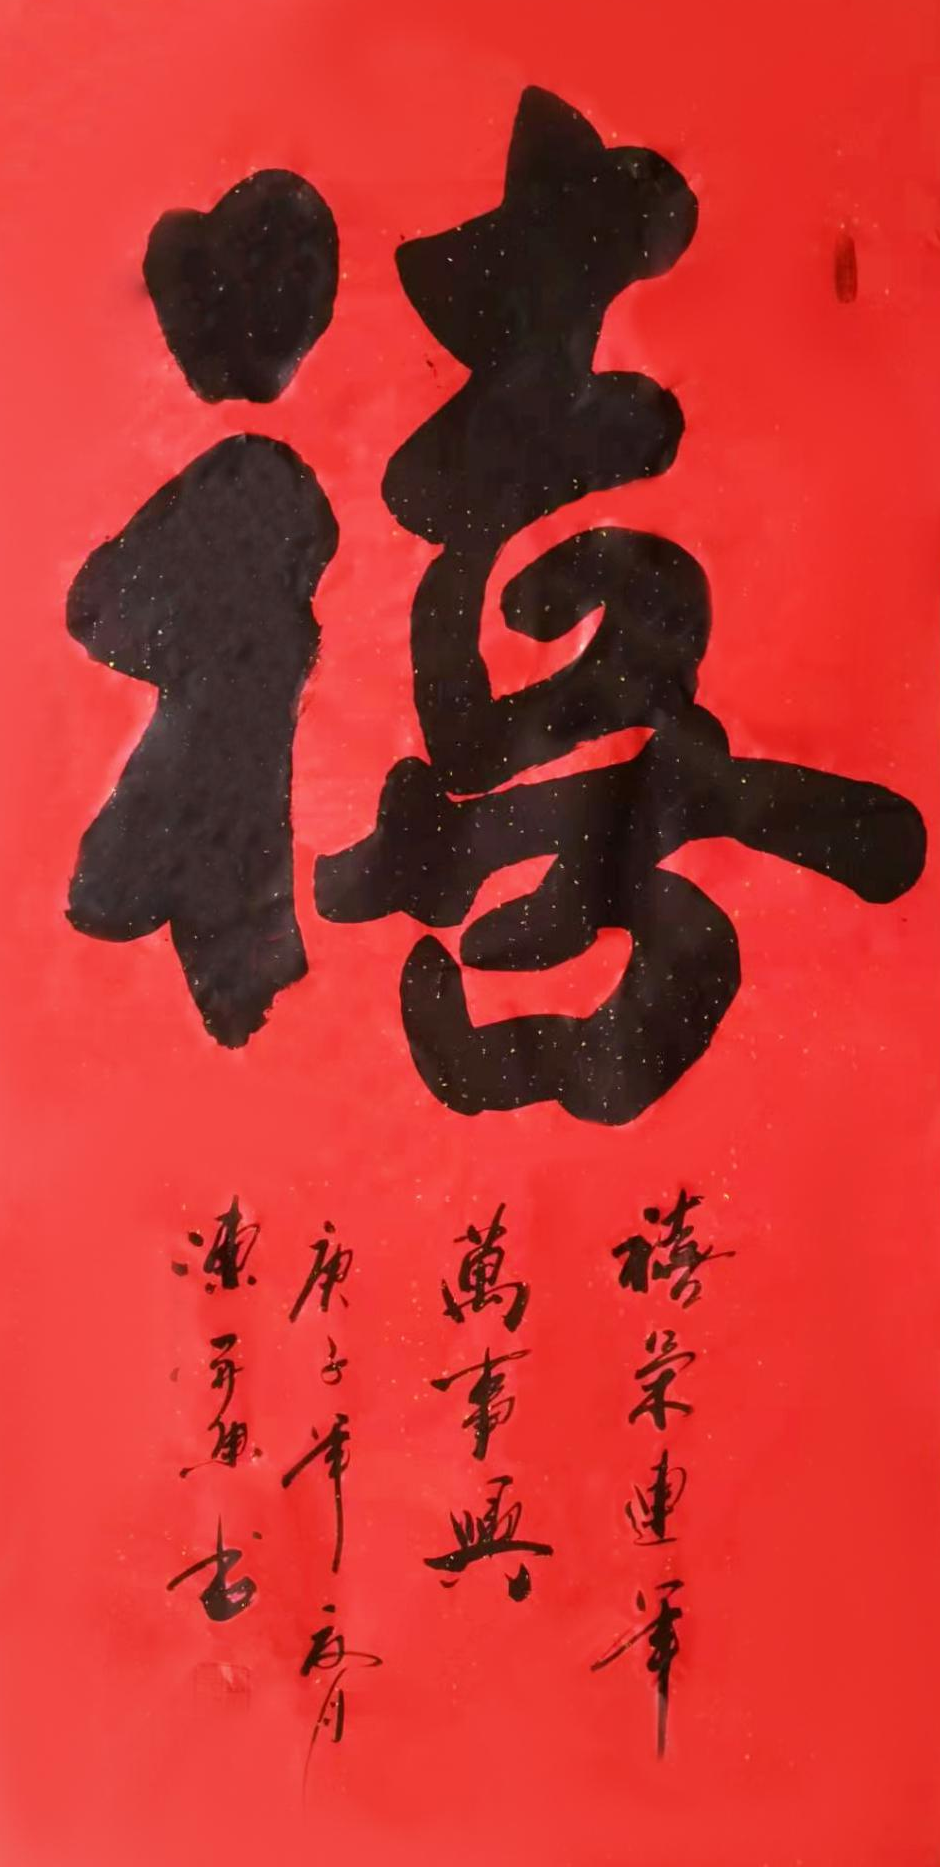 禧
禧榮連年
萬事興
庚子年夏月
開書